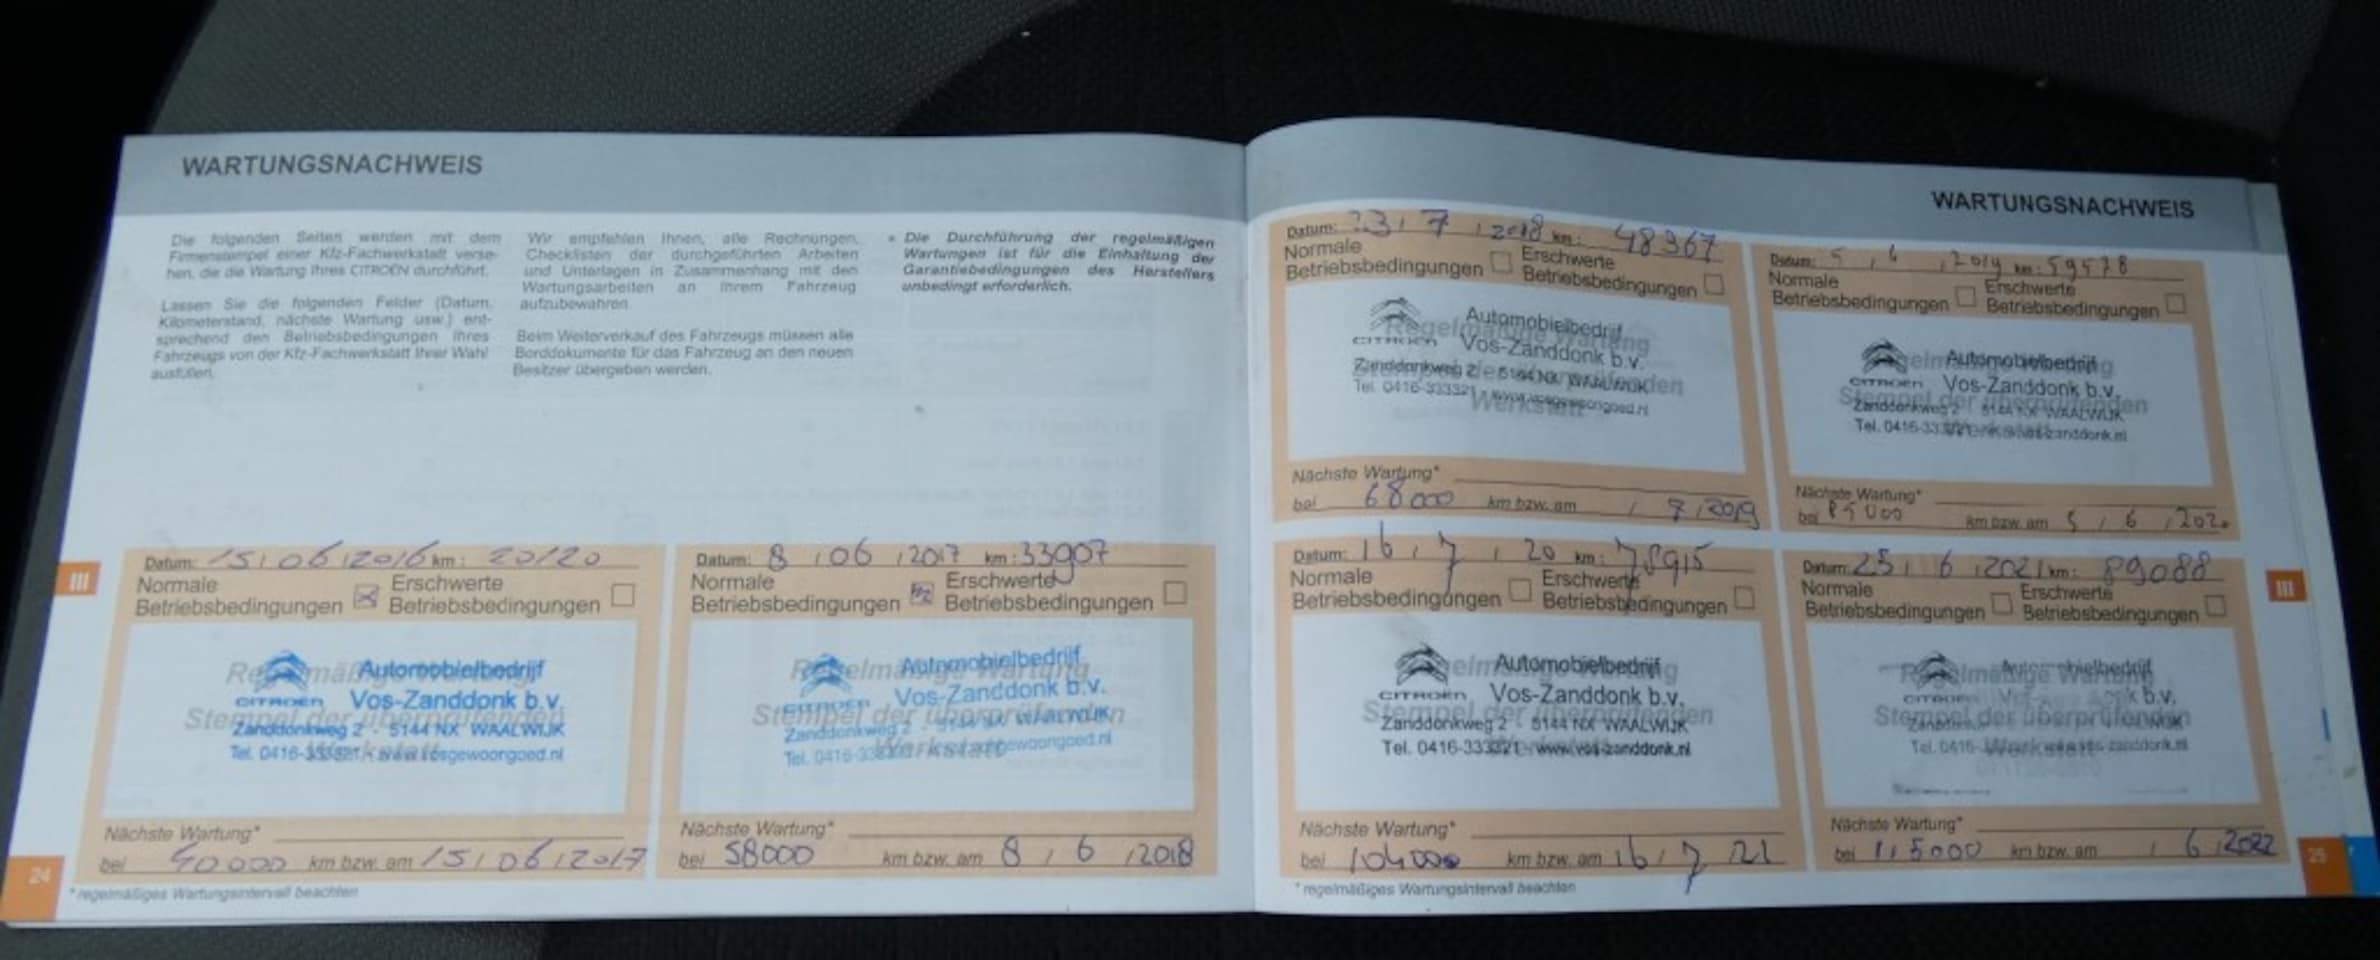 WARTUNGSNACHWEIS
Die folgenden Seiten werden mit dem
Firmenstempel einer Kfz-Fachwerkstatt verse-
hen, die die Wartung Ihres CITROËN durchführt.
Lassen Sie die folgenden Felder (Datum,
Kilometerstand, nächste Wartung usw.) ent-
sprechend den Betriebsbedingungen Ihres
Fahrzeugs von der Kfz-Fachwerkstatt Ihrer Wahl
ausfüllen.
Wir empfehlen Ihnen, alle Rechnungen,
Checklisten der durchgeführten Arbeiten
und Unterlagen in Zusammenhang mit den
Wartungsarbeiten an Ihrem Fahrzeug
aufzubewahren.
Beim Weiterverkauf des Fahrzeugs müssen alle
Borddokumente für das Fahrzeug an den neuen
Besitzer übergeben werden.
• Die Durchführung der regelmäßigen
Wartungen ist für die Einhaltung der
Garantiebedingungen des Herstellers
unbedingt erforderlich.
III
Datum: 15/06/2016 km: 20120
Normale Erschwerte
Betriebsbedingungen Betriebsbedingungen
Regelmäßige Wartung
Stempel der überprüfenden
Werkstatt
Automobielbedrijf
CITROËN Vos-Zanddonk b.v.
Zanddonkweg 2 - 5144 NX WAALWIJK
Tel. 0416-333321 www.vosgewoongoed.nl
Nächste Wartung*
bei 40000 km bzw. am 15/06/2017
* regelmäßiges Wartungsintervall beachten
24
Datum: 8/06/2017 km: 33907
Normale Erschwerte
Betriebsbedingungen Betriebsbedingungen
Regelmäßige Wartung
Stempel der überprüfenden
Werkstatt
Automobielbedrijf
CITROËN Vos-Zanddonk b.v.
Zanddonkweg 2 - 5144 NX WAALWIJK
Tel. 0416-333321 www.vosgewoongoed.nl
Nächste Wartung*
bei 58000 km bzw. am 8/6/2018
WARTUNGSNACHWEIS
Datum: 23/7/2018 km: 48367
Normale Erschwerte
Betriebsbedingungen Betriebsbedingungen
Regelmäßige Wartung
Stempel der überprüfenden
Werkstatt
Automobielbedrijf
CITROËN Vos-Zanddonk b.v.
Zanddonkweg 2 - 5144 NX WAALWIJK
Tel. 0416-333321 www.vosgewoongoed.nl
Nächste Wartung*
bei 68000 km bzw. am / 7/2019
Datum: 5/6/2019 km: 59578
Normale Erschwerte
Betriebsbedingungen Betriebsbedingungen
Regelmäßige Wartung
Stempel der überprüfenden
Werkstatt
Automobielbedrijf
CITROËN Vos-Zanddonk b.v.
Zanddonkweg 2 - 5144 NX WAALWIJK
Tel. 0416-333321 www.vos-zanddonk.nl
Nächste Wartung*
bei 85000 km bzw. am 5/6/2020
Datum: 16/7/20 km: 78915
Normale Erschwerte
Betriebsbedingungen Betriebsbedingungen
Regelmäßige Wartung
Stempel der überprüfenden
Werkstatt
Automobielbedrijf
CITROËN Vos-Zanddonk b.v.
Zanddonkweg 2 - 5144 NX WAALWIJK
Tel. 0416-333321 - www.vos-zanddonk.nl
Nächste Wartung*
bei 104000 km bzw. am 16/7/21
* regelmäßiges Wartungsintervall beachten
Datum: 25/6/2021 km: 89088
Normale Erschwerte
Betriebsbedingungen Betriebsbedingungen
Regelmäßige Wartung
Stempel der überprüfenden
Werkstatt
Automobielbedrijf
CITROËN b.v.
Tel. 0416- vos-zanddonk.nl
Nächste Wartung*
bei 115000 km bzw. am / 6/2022
III
25